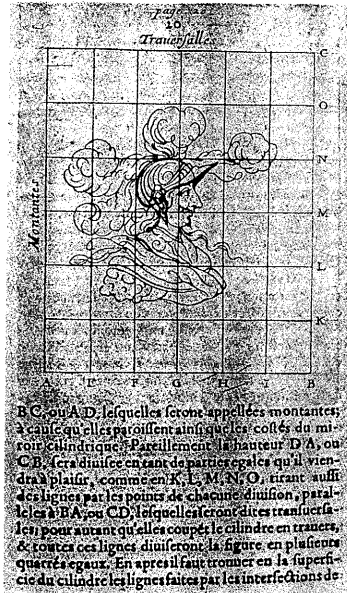 page 20
10
Trauersalles
C
O
N
M
Montantes
L
K
A E F G H I B
B C, ou A D, lesquelles seront appellées montantes;
à cause qu'elles paroissent ainsi que les costés du mi-
roir cilindrique. Pareillement la hauteur D A, ou
C B, sera diuisée en tant de parties egales qu'il vien-
dra à plaisir, comme en K, L, M, N, O, tirant aussi
des lignes par les points de chacune diuision, paral-
leles à B A, ou C D, lesquelles seront dites trasuersa-
les; pour autant qu'elles coupẽt le cilindre en trauers,
& toutes ces lignes diuiseront la figure en plusieurs
quarrés egaux. En apres il faut trouuer en la superfi-
cie du cilindre les lignes faites par les intersections de